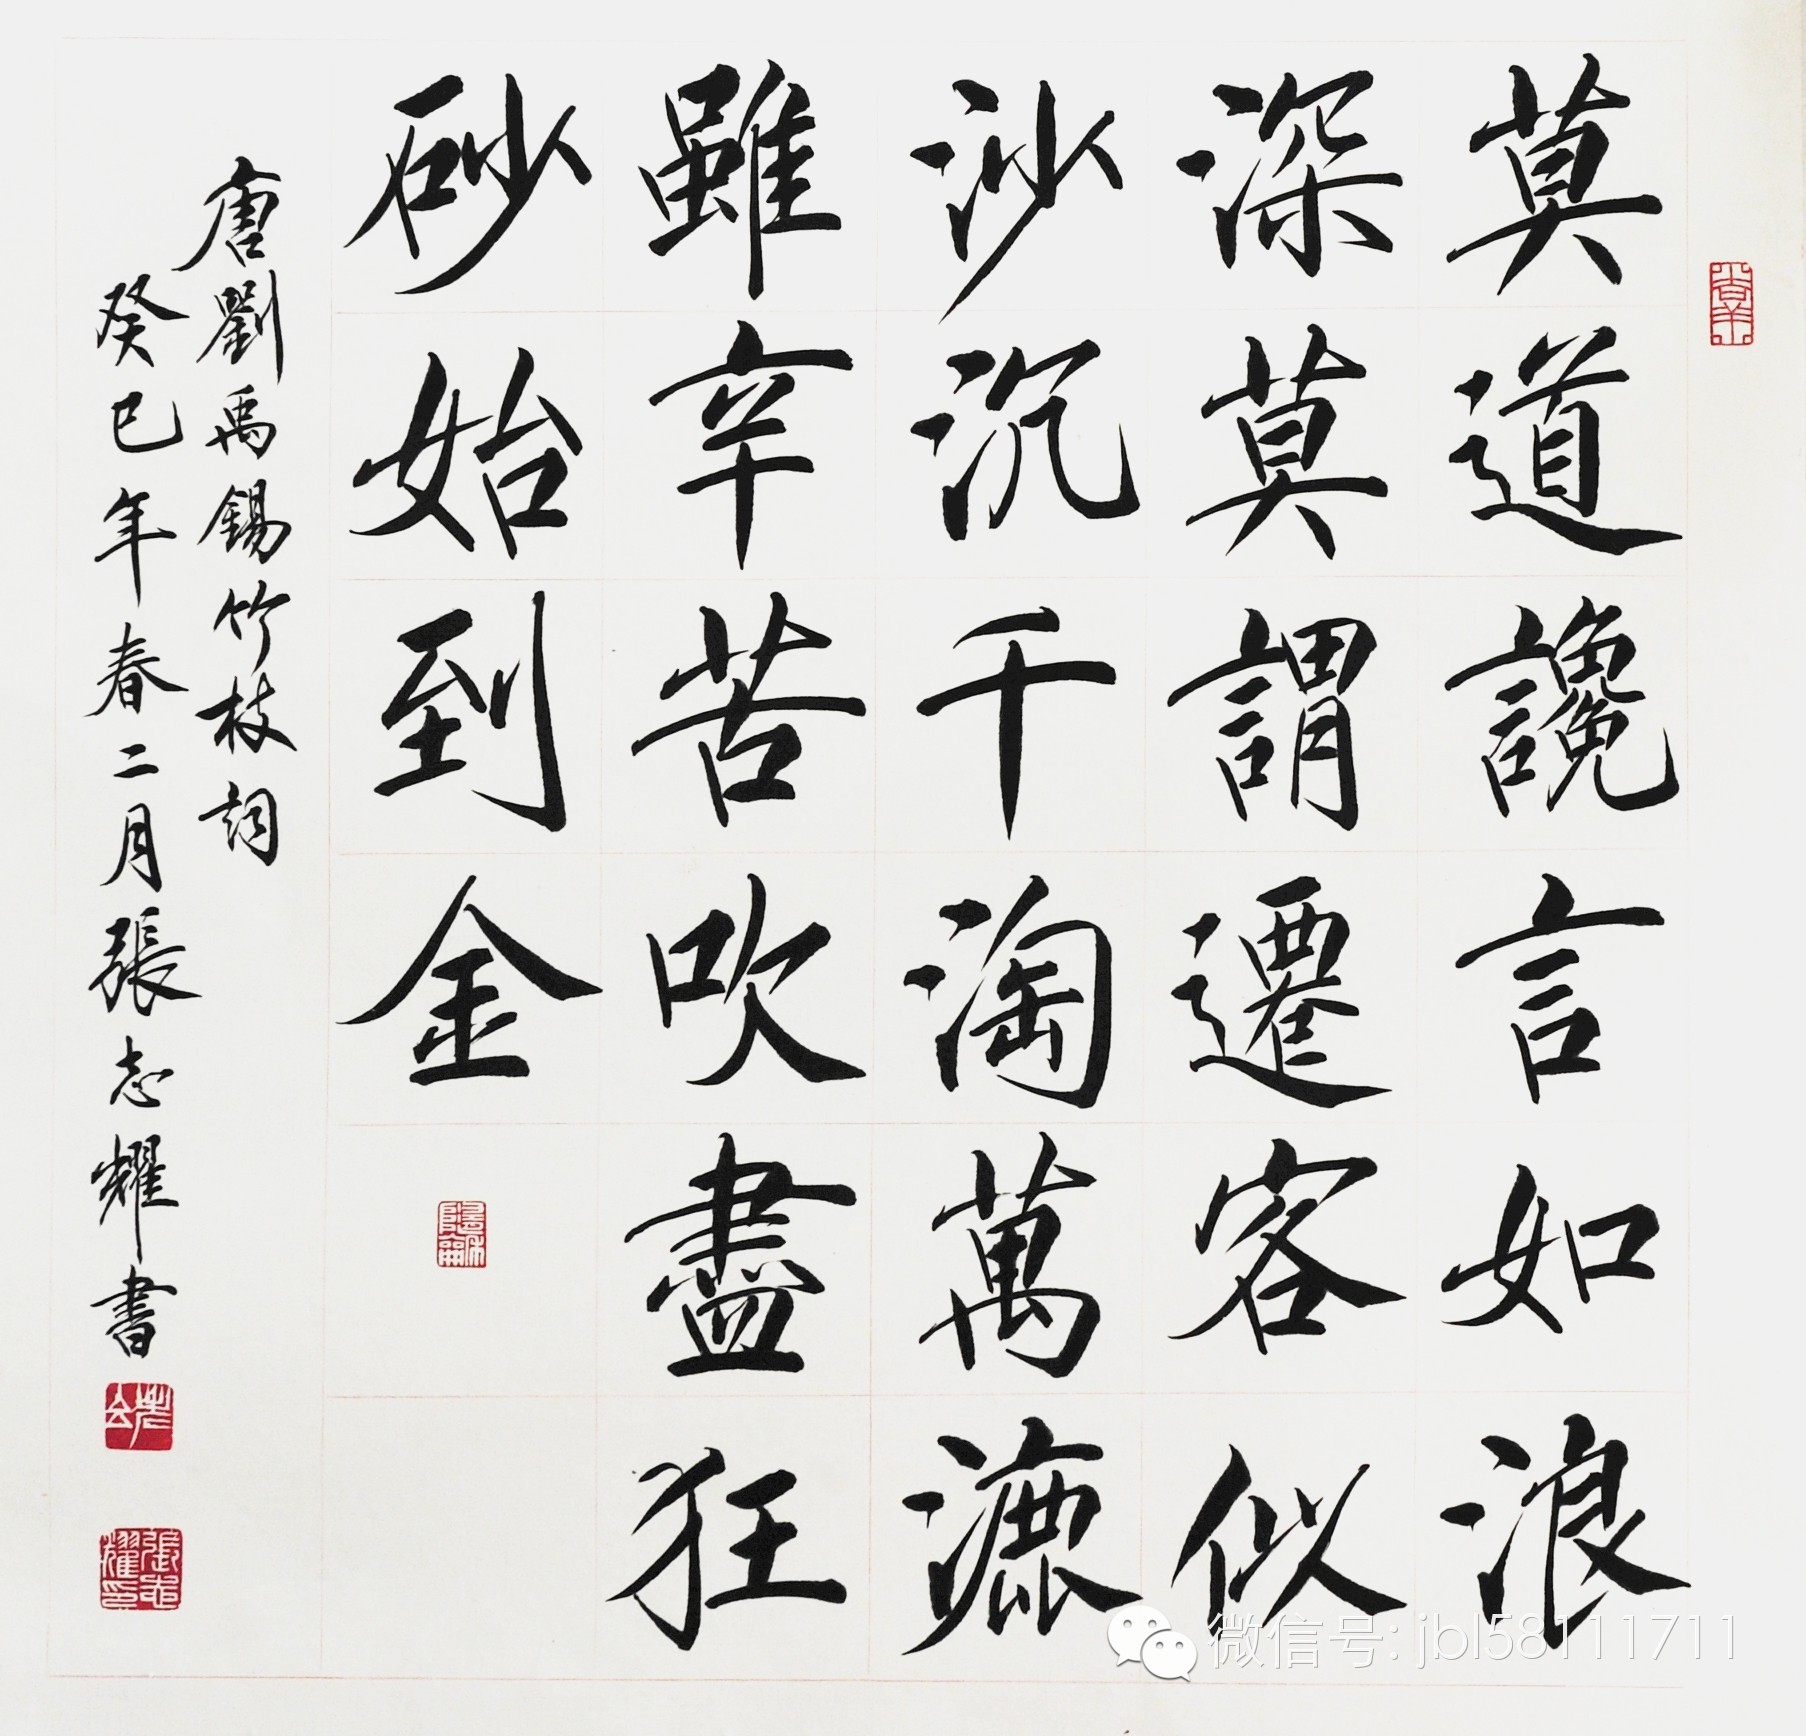 莫道讒言如浪
深莫謂遷客似
沙沉千淘萬漉
雖辛苦吹盡狂
砂始到金
唐劉禹錫竹枝詞
癸巳年春二月張志耀書
張志耀印
微信号: jbl58111711